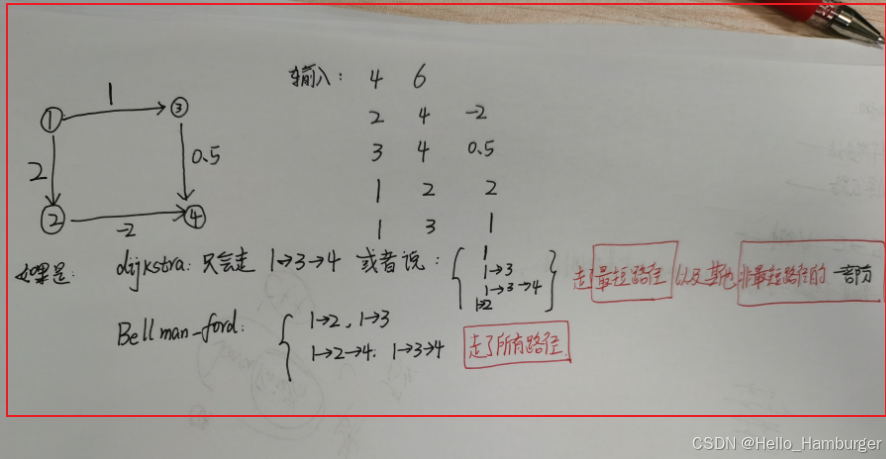 输入: 4 6
2 4 -2
3 4 0.5
1 2 2
1 3 1
1
① ③
2 0.5
② ④
-2
如果是: dijkstra: 只会走 1→3→4 或者说: 1
1→3
1→3→4
1→2
走了最短路径 以及其他 非最短路径的 一部分
Bellman-ford: 1→2, 1→3
1→2→4. 1→3→4 走了所有路径.
CSDN @Hello_Hamburger